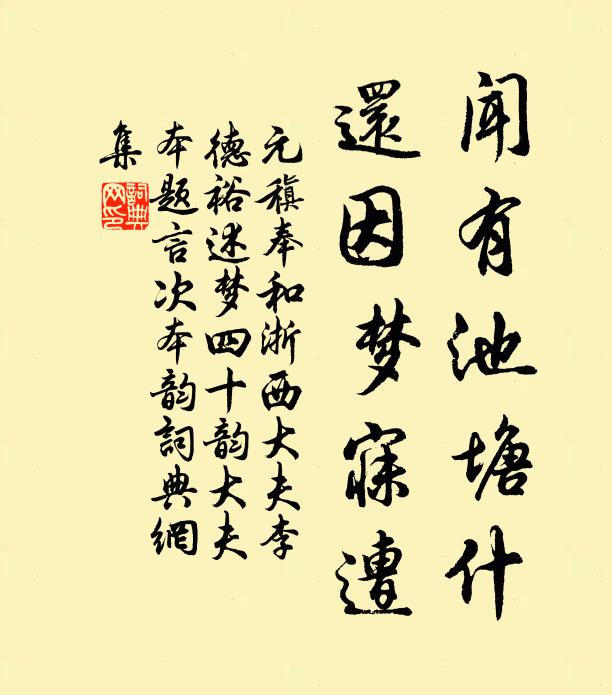 聞有池塘什
還因梦寐遭
元稹奉和浙西大夫李
德裕述梦四十韵大夫
本题言次本韵詞典網
集
詞典网印